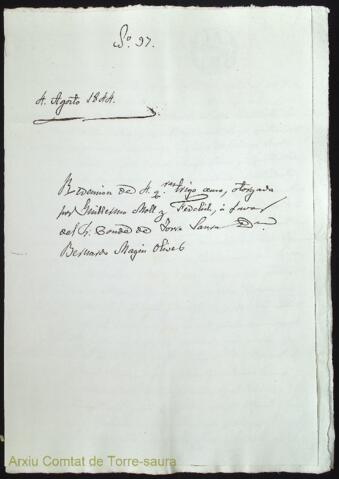 Nº. 97.
4. Agosto 1844.
Redencion de 4. qras. trigo censo, otorgada
por Guillermo Moll y Febrer, á favor
del Sr. Conde de Torre Saura Dn.
Bernardo Magin Olives
Arxiu Comtat de Torre-saura